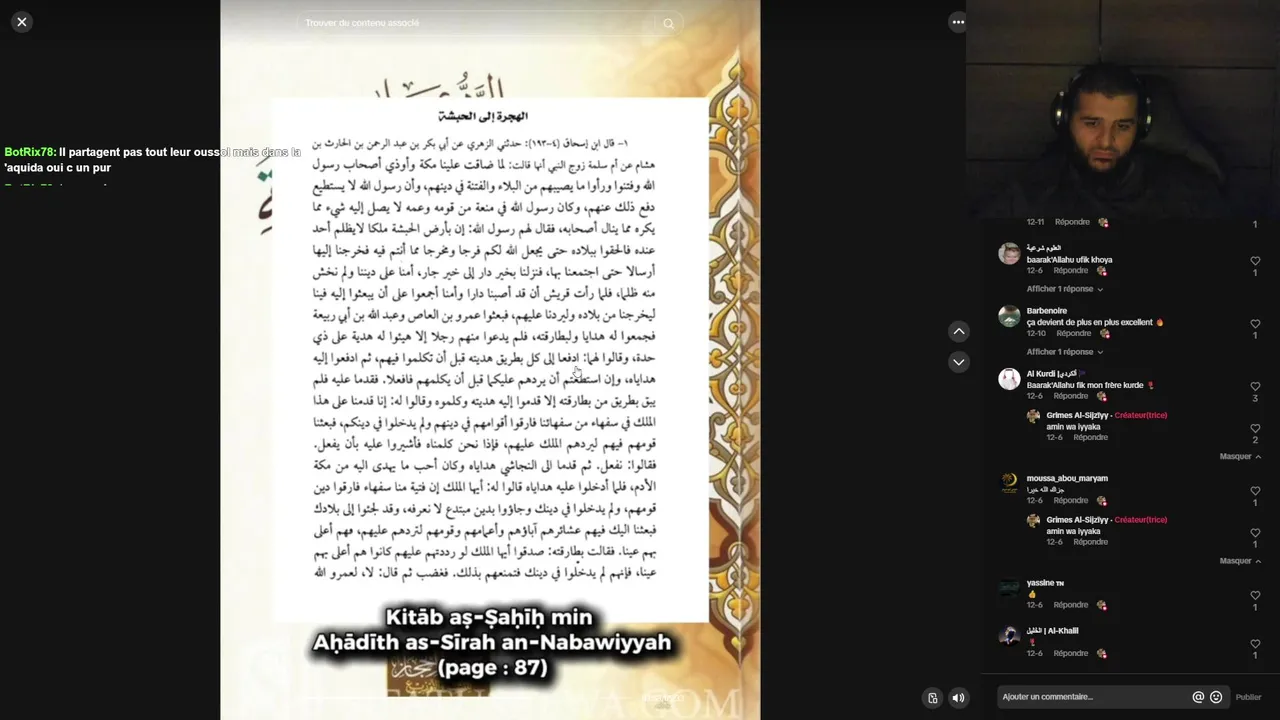 Trouver du contenu associé
BotRix78: Il partagent pas tout leur oussol mais dans la
'aquida oui c un pur
الهجرة إلى الحبشة
١- قال ابن إسحاق (٤-١٩٣): حدثني الزهري عن أبي بكر بن عبد الرحمن بن الحارث بن
هشام عن أم سلمة زوج النبي أنها قالت: لما ضاقت علينا مكة وأوذي أصحاب رسول
الله وفتنوا ورأوا ما يصيبهم من البلاء والفتنة في دينهم، وأن رسول الله لا يستطيع
دفع ذلك عنهم، وكان رسول الله في منعة من قومه وعمه لا يصل إليه شيء مما
يكره مما ينال أصحابه، فقال لهم رسول الله: إن بأرض الحبشة ملكا لايظلم أحد
عنده فالحقوا ببلاده حتى يجعل الله لكم فرجا ومخرجا مما أنتم فيه فخرجنا إليها
أرسالا حتى اجتمعنا بها، فنزلنا بخير دار إلى خير جار، أمنا على ديننا ولم نخش
منه ظلما، فلما رأت قريش أن قد أصبنا دارا وأمنا أجمعوا على أن يبعثوا إليه فينا
ليخرجنا من بلاده وليردنا عليهم، فبعثوا عمرو بن العاص وعبد الله بن أبي ربيعة
فجمعوا له هدايا ولبطارقته، فلم يدعوا منهم رجلا إلا هيئوا له هدية على ذي
حدة، وقالوا لهما: ادفعا إلى كل بطريق هديته قبل أن تكلموا فيهم، ثم ادفعوا إليه
هداياه، وإن استطعتم أن يردهم عليكما قبل أن يكلمهم فافعلا. فقدما عليه فلم
يبق بطريق من بطارقته إلا قدموا إليه هديته وكلموه وقالوا له: إنا قدمنا على هذا
الملك في سفهاء من سفهائنا فارقوا أقوامهم في دينهم ولم يدخلوا في دينكم، فبعثنا
قومهم فيهم ليردهم الملك عليهم، فإذا نحن كلمناه فأشيروا عليه بأن يفعل.
فقالوا: نفعل. ثم قدما الى النجاشي هداياه وكان أحب ما يهدى اليه من مكة
الأدم، فلما أدخلوا عليه هداياه قالوا له: أيها الملك إن فتية منا سفهاء فارقوا دين
قومهم، ولم يدخلوا في دينك وجاؤوا بدين مبتدع لا نعرفه، وقد لجئوا إلى بلادك
فبعثنا اليك فيهم عشائرهم آباؤهم وأعمامهم وقومهم لتردهم عليهم، فهم أعلى
بهم عينا. فقالت بطارقته: صدقوا أيها الملك لو رددتهم عليهم كانوا هم أعلى بهم
عينا، فإنهم لم يدخلوا في دينك فتمنعهم بذلك. فغضب ثم قال: لا، لعمرو الله
Kitāb aṣ-Ṣaḥīḥ min
Aḥādīth as-Sīrah an-Nabawiyyah
(page : 87)
12-11 Répondre
1
العلوم شرعية
baarak'Allahu ufik khoya
12-6 Répondre
3
Afficher 1 réponse
Barbenoire
ça devient de plus en plus excellent
12-10 Répondre
1
Afficher 1 réponse
Al Kurdi
Baarak'Allahu fik mon frère kurde
12-6 Répondre
3
Grimes Al-Sijzīyy · Créateur(trice)
amin wa iyyaka
12-6 Répondre
2
Masquer
moussa_abou_maryam
جزاك الله خيرا
12-6 Répondre
1
Grimes Al-Sijzīyy · Créateur(trice)
amin wa iyyaka
12-6 Répondre
1
Masquer
yassine TN
12-6 Répondre
1
الخليل | Al-Khalil
12-6 Répondre
1
Ajouter un commentaire...
Publier